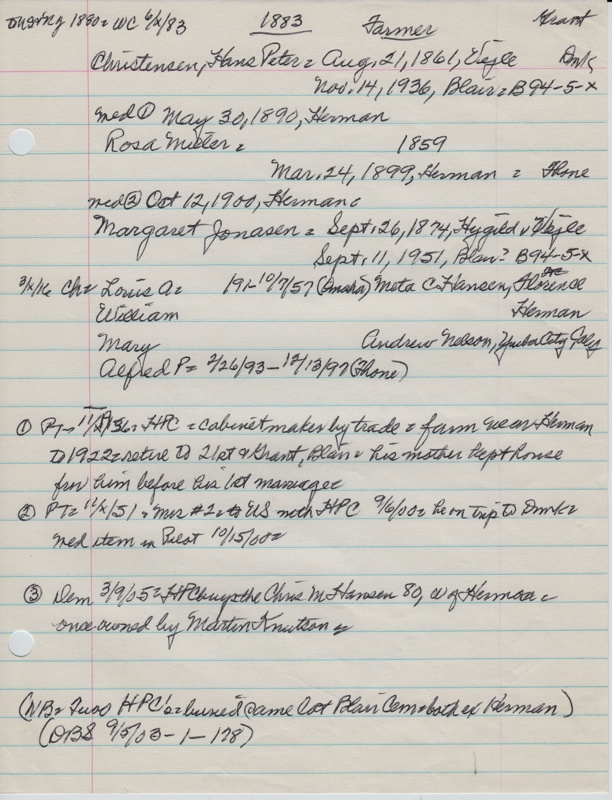 1890 = WC 6/X/83 1883 Farmer Grant
Christensen, Hans Peter = Aug. 21, 1861, Vejle Dmk
Nov. 14, 1936, Blair = B94-5-X
med ① May 30, 1890, Herman
Rosa Miller = 1859
Mar. 24, 1899, Herman = Fhone
med ② Oct 12, 1900, Herman =
Margaret Jonasen = Sept. 26, 1874, Hygild, Vejle
Sept. 11, 1951, Blair? B94-5-X
Ch = Louis A = 191-10/7/57 (Omaha) Meta C. Hansen, Florence
William Herman
Mary Andrew Nelson, Yuba City, Calif
Alfred P = 2/26/93 - 12/13/97 (Fhone)
① PT = HPC = cabinet maker by trade = farm near Herman
to 1922 = retire to 21st & Grant, Blair = his mother kept house
for him before his 1st marriage =
② PT = 11/X/51 = Mrs #2 = to US with HPC 9/6/00 = he on trip to Dmk =
med item in Pilot 10/15/00 =
③ Dem 3/9/05 = HPC buys the Chris M Hansen 80, W of Herman =
once owned by Martin Knutson =
(NB = Two HPC's = buried same lot Blair Cem = both ex Herman)
(DBS 9/5/03-1-178)